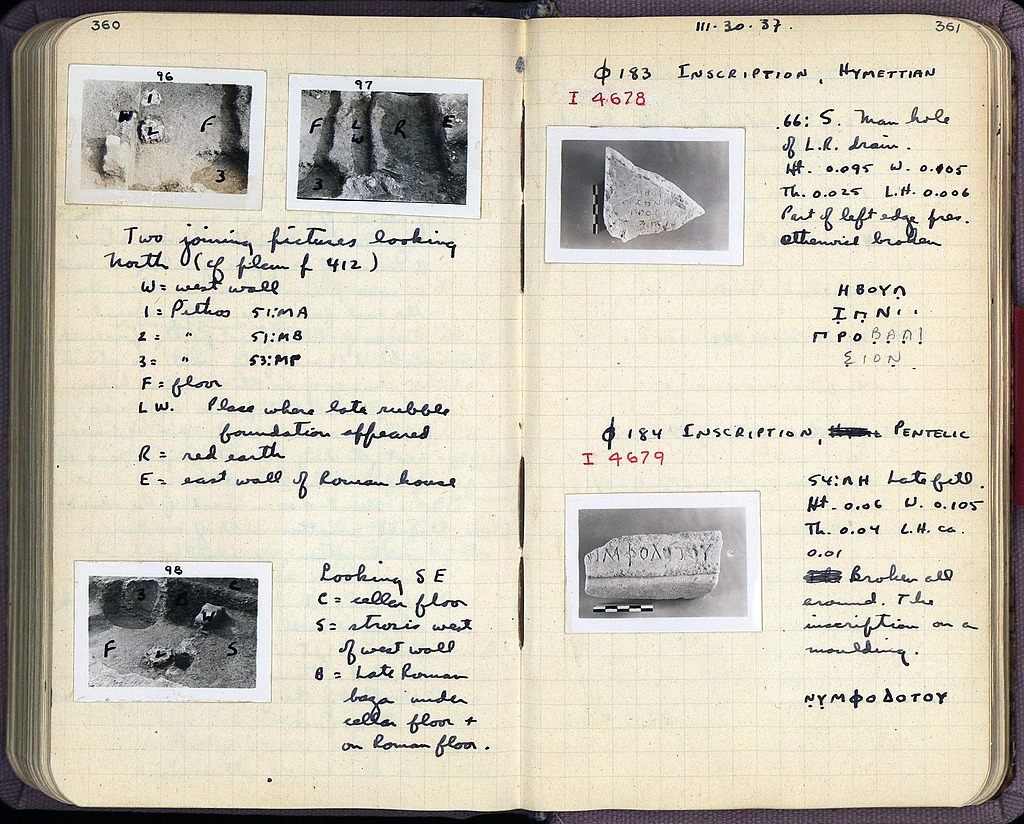 360
96
1
W
2
F
3
97
F
L
W
R
E
3
Two joining pictures looking
North (cf plan p 412)
W = west wall
1 = Pithos 51:MA
2 = " 51:MB
3 = " 53:MP
F = floor
LW. Place where late rubble
foundation appeared
R = red earth
E = east wall of Roman house
98
3
B
C
W
F
L
S
Looking SE
C = cellar floor
S = strosis west
of west wall
B = Late Roman
baza under
cellar floor +
on Roman floor.
III·30·37.
361
Φ 183 INSCRIPTION, HYMETTIAN
I 4678
66: S. Man hole
of L.R. drain.
Ht. 0.095 W. 0.105
Th. 0.025 L.H. 0.006
Part of left edge pres.
otherwise broken
Η ΒΟΥΛ
ΠΡΟΒΑΛΙ
ΣΙΟΝ
Φ 184 INSCRIPTION, PENTELIC
I 4679
ΥΜΦΟΔΟΤΟΥ
54:ΛΗ Late fill.
Ht. 0.06 W. 0.105
Th. 0.04 L.H. ca.
0.01
Broken all
around. The
inscription on a
moulding.
ΝΥΜΦΟΔΟΤΟΥ